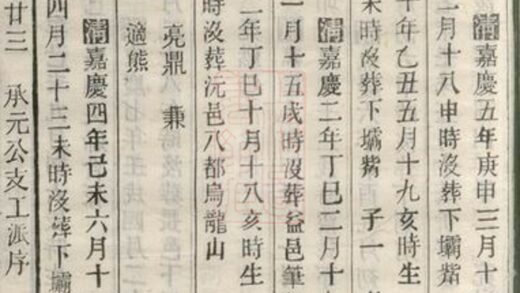 清嘉慶五年庚申三月十
二月十八申時沒葬下壩觜
十年乙丑五月十九亥時生
未時沒葬下壩觜 子一
清嘉慶二年丁巳二月十
一月十五戌時沒葬益邑筆
二年丁巳十月十八亥時生
時沒葬沅邑八都烏龍山
亮鼎 兼
適熊
清嘉慶四年己未六月十
四月二十三未時沒葬下壩
廿三 承元公支工派序